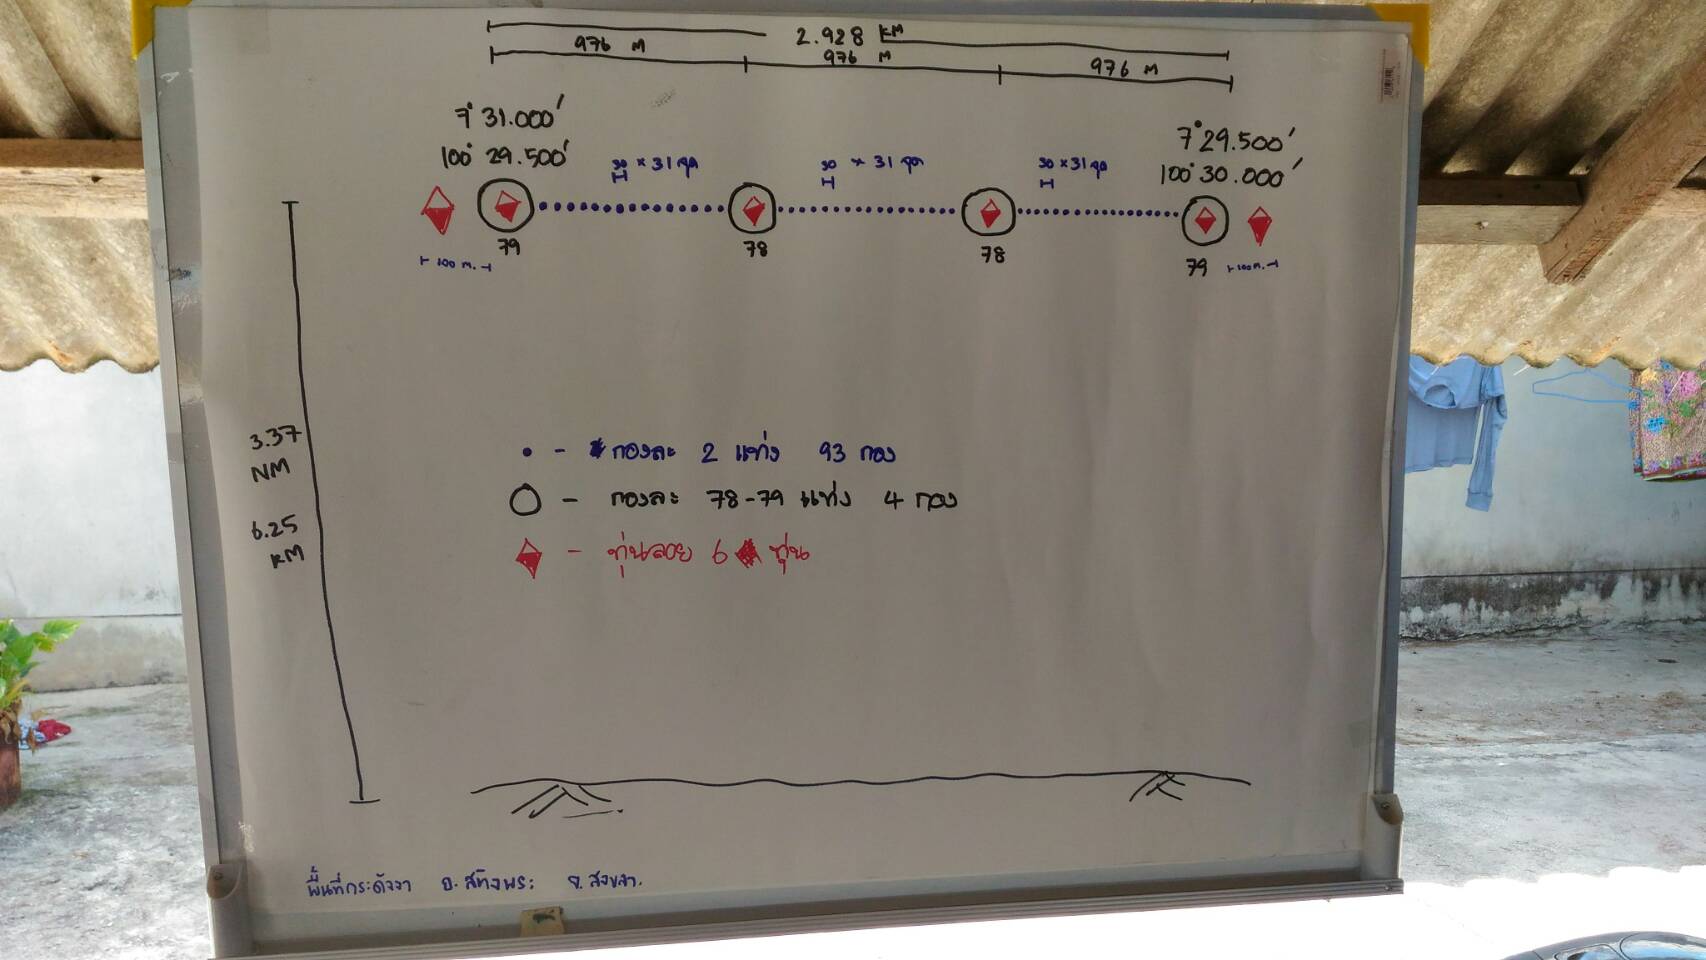 2.928 KM
976 M
976 M
976 M
7° 31.000'
100° 29.500'
7° 29.500'
100° 30.000'
30 × 31 จุด
30 × 31 จุด
30 × 31 จุด
79
78
78
79
100 m.
100 m.
3.37 NM
6.25 KM
• - กองละ 2 แท่ง 93 กอง
○ - กองละ 78-79 แท่ง 4 กอง
- ทุ่นลอย 6 ทุ่น
พื้นที่กระดังงา อ.สทิงพระ จ.สงขลา.